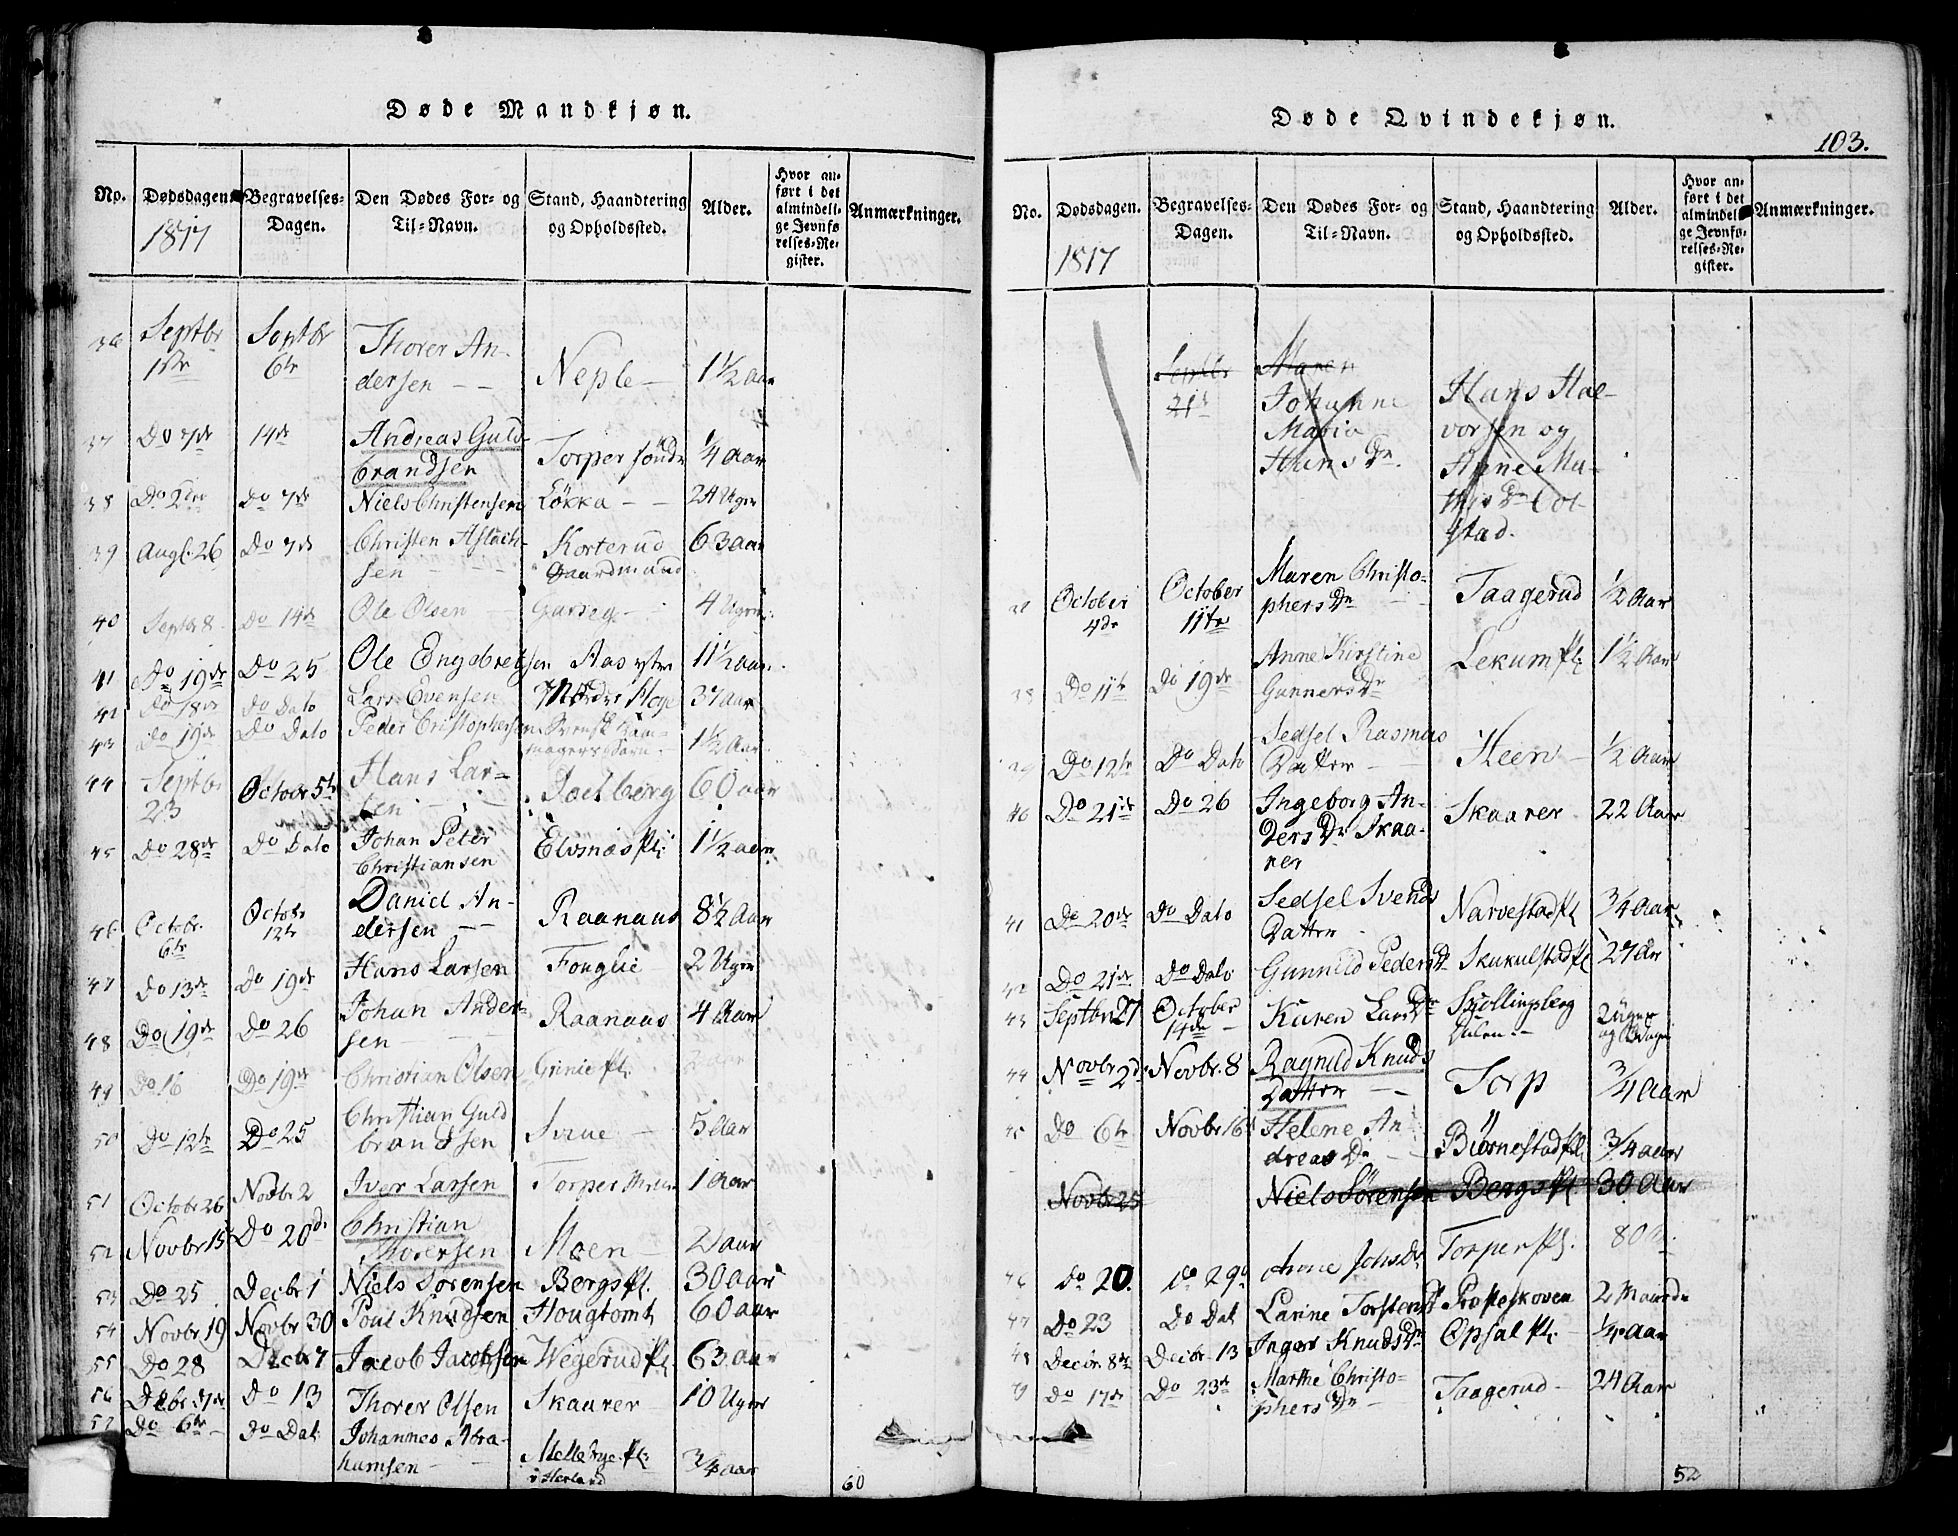 Døde Mandkjøn.
No. Dødsdagen. Begravelses-Dagen. Den Dødes For- og Til-Navn. Stand, Haandtering og Opholdssted. Alder. Hvor anført i det almindelige Jevnførelses-Register. Anmærkninger.
1817
36 Septbr 1ste Septbr 6te Thorer Andersen Neple 1½ Aar
37 Do 7de 14de Andreas Guldbrandsen Torper søndr ¼ Aar
38 Do 2den Do 7de Niels Christensen Løkka 24 Uger
39 Augl. 26 Do 7de Christen Aslachsen Korterud Gaardmand 63 aar
40 Septbr 8 Do 14de Ole Olsen 4 Uger
41 Do 19de Do 25 Ole Engebretsen Aas ytre 11½ aar
42 Do 18de Do Dato Lars Evensen 37 aar
43 Do 19de Do Dato Peder Cristophersen Svensk 1½ Aar
44 Septbr 23 Octobr 5te Hans Larsen 60 aar
45 Do 28de Do Dato Johan Peter Christiansen Elvsnæs Pl: 1½ aar
46 Octobr. 6te Octobr 12te Daniel Andersen Raanaas 8½ Aar
47 Do 13de Do 19de Hans Larsen Fouglie 2 Uger
48 Do 19de Do 26 Johan Andersen Raanaas 4 Aar
49 Do 16 Do 19de Christian Olsen Grinie Pl. 2 aar
50 Do 12te Do 25 Christian Guldbrandsen 5 Aar
51 Octobr 26 Novbr 2 Iver Larsen Torper 1 Aar
52 Novbr 15 Do 20de Christian Thorersen Moen 2 aar
53 Do 25 Decbr 1 Niels Sörensen Bergs Pl. 30 aar
54 Novbr 19 Novbr 30 Poul Knudsen Hougtomt 60 aar
55 Do 28 Decbr 7 Jacob Jacobsen Wegerud Pl. 63 aar
56 Decbr 7de Do 13 Thorer Olsen Skaarer 10 Uger
57 Do 6te Do Dat: Johannes Abrahamsen Mellebye Pl: i Herland ¾ aar
60
Døde Qvindekjøn.
103.
No. Dødsdagen. Begravelses-Dagen. Den Dødes For- og Til-Navn. Stand, Haandtering og Opholdssted. Alder. Hvor anført i det almindelige Jevnførelses-Register. Anmærkninger.
1817
Septbr 21de Maren Johanne Maria Hans Dr. Hans Halvorsen og Anne Mathis Dr Colstad.
October 4de October 11te Maren Christophers Dr Taagerud ½ Aar
38 Do 11te Do 19de Anne Kirstine Gunners Dr Lekum Pl: 1½ Aar
39 Do 12te Do Dato Sedsel Rasmus Datter Heen ½ Aar
40 Do 21de Do 26 Ingeborg Anders Dr Skaarer Skaarer 22 Aar
41 Do 20de Do Dato Sedsel Svends Datter Narvestad Pl ¾ Aar
42 Do 21de Do Dato Gunnild Peders Dr Skukulstad Pl 27 Aar
43 Septbr 27 October 14de Karen Lars Dr Skollingsberg 2 Uger og Dage
44 Novbr 2de Novbr. 8 Ragnild Knuds Datter Torp ¾ Aar
45 Do 6te Novbr 16 Helene Andreas Dr Biørnestad Pl. ¾ aar
Novbr 25 Niels Sörensen Bergs Pl. 30 Aar
46 Do 20. Do 29de Anne Johs Dr Torper Pl. 80
47 Do 23 Do Dat Larine Torstens Dr Præsteskoven 2 Maand
48 Decbr. 8de Decbr. 13 Inger Knuds Dr Opsal Pl: ¼ Aar
9 Do 17de Do 23de Marthe Christophers Dr Taagerud 24 Aar
52